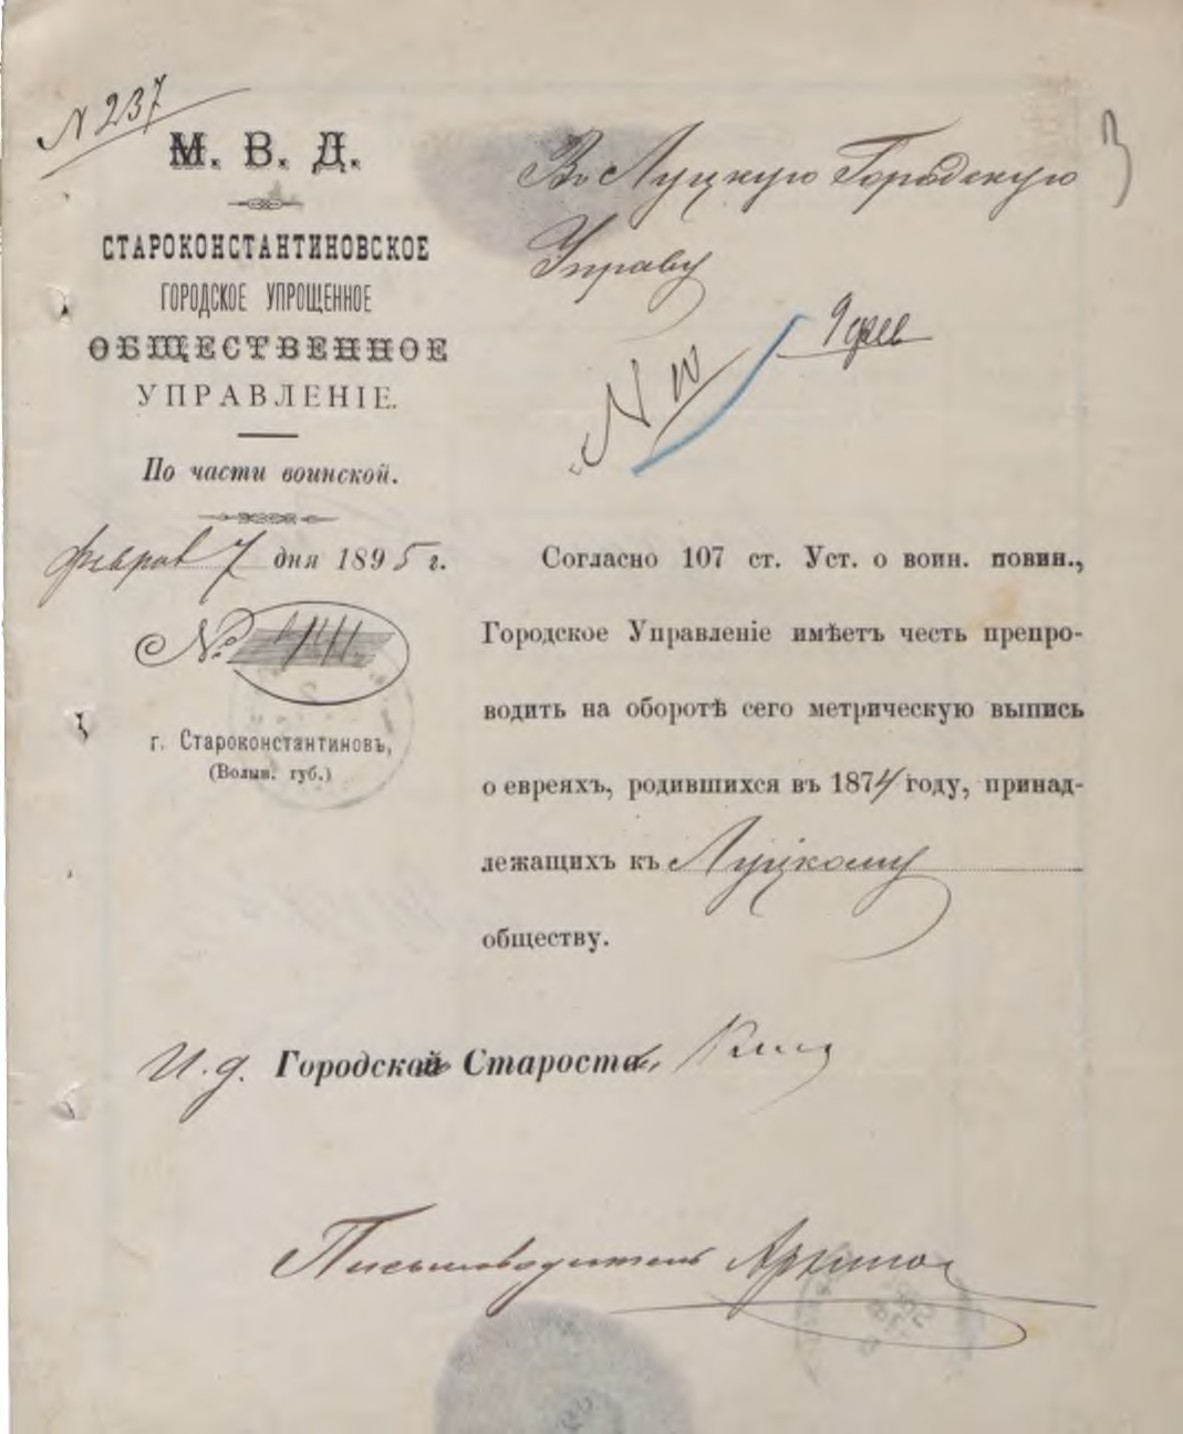 N 237
М. В. Д.
СТАРОКОНСТАНТИНОВСКОЕ
ГОРОДСКОЕ УПРОЩЕННОЕ
ОБЩЕСТВЕННОЕ
УПРАВЛЕНІЕ.
По части воинской.
феврал 7 дня 1895 г.
№
г. Староконстантиновъ,
(Волын. губ.)
3
Въ Луцкую Городскую
Управу
9 фев
Согласно 107 ст. Уст. о воин. повин.,
Городское Управленіе имѣетъ честь препро-
водить на оборотѣ сего метрическую выпись
о евреяхъ, родившихся въ 1874 году, принад-
лежащихъ къ Луцкому
обществу.
И. д. Городской Староста
Письмоводитель